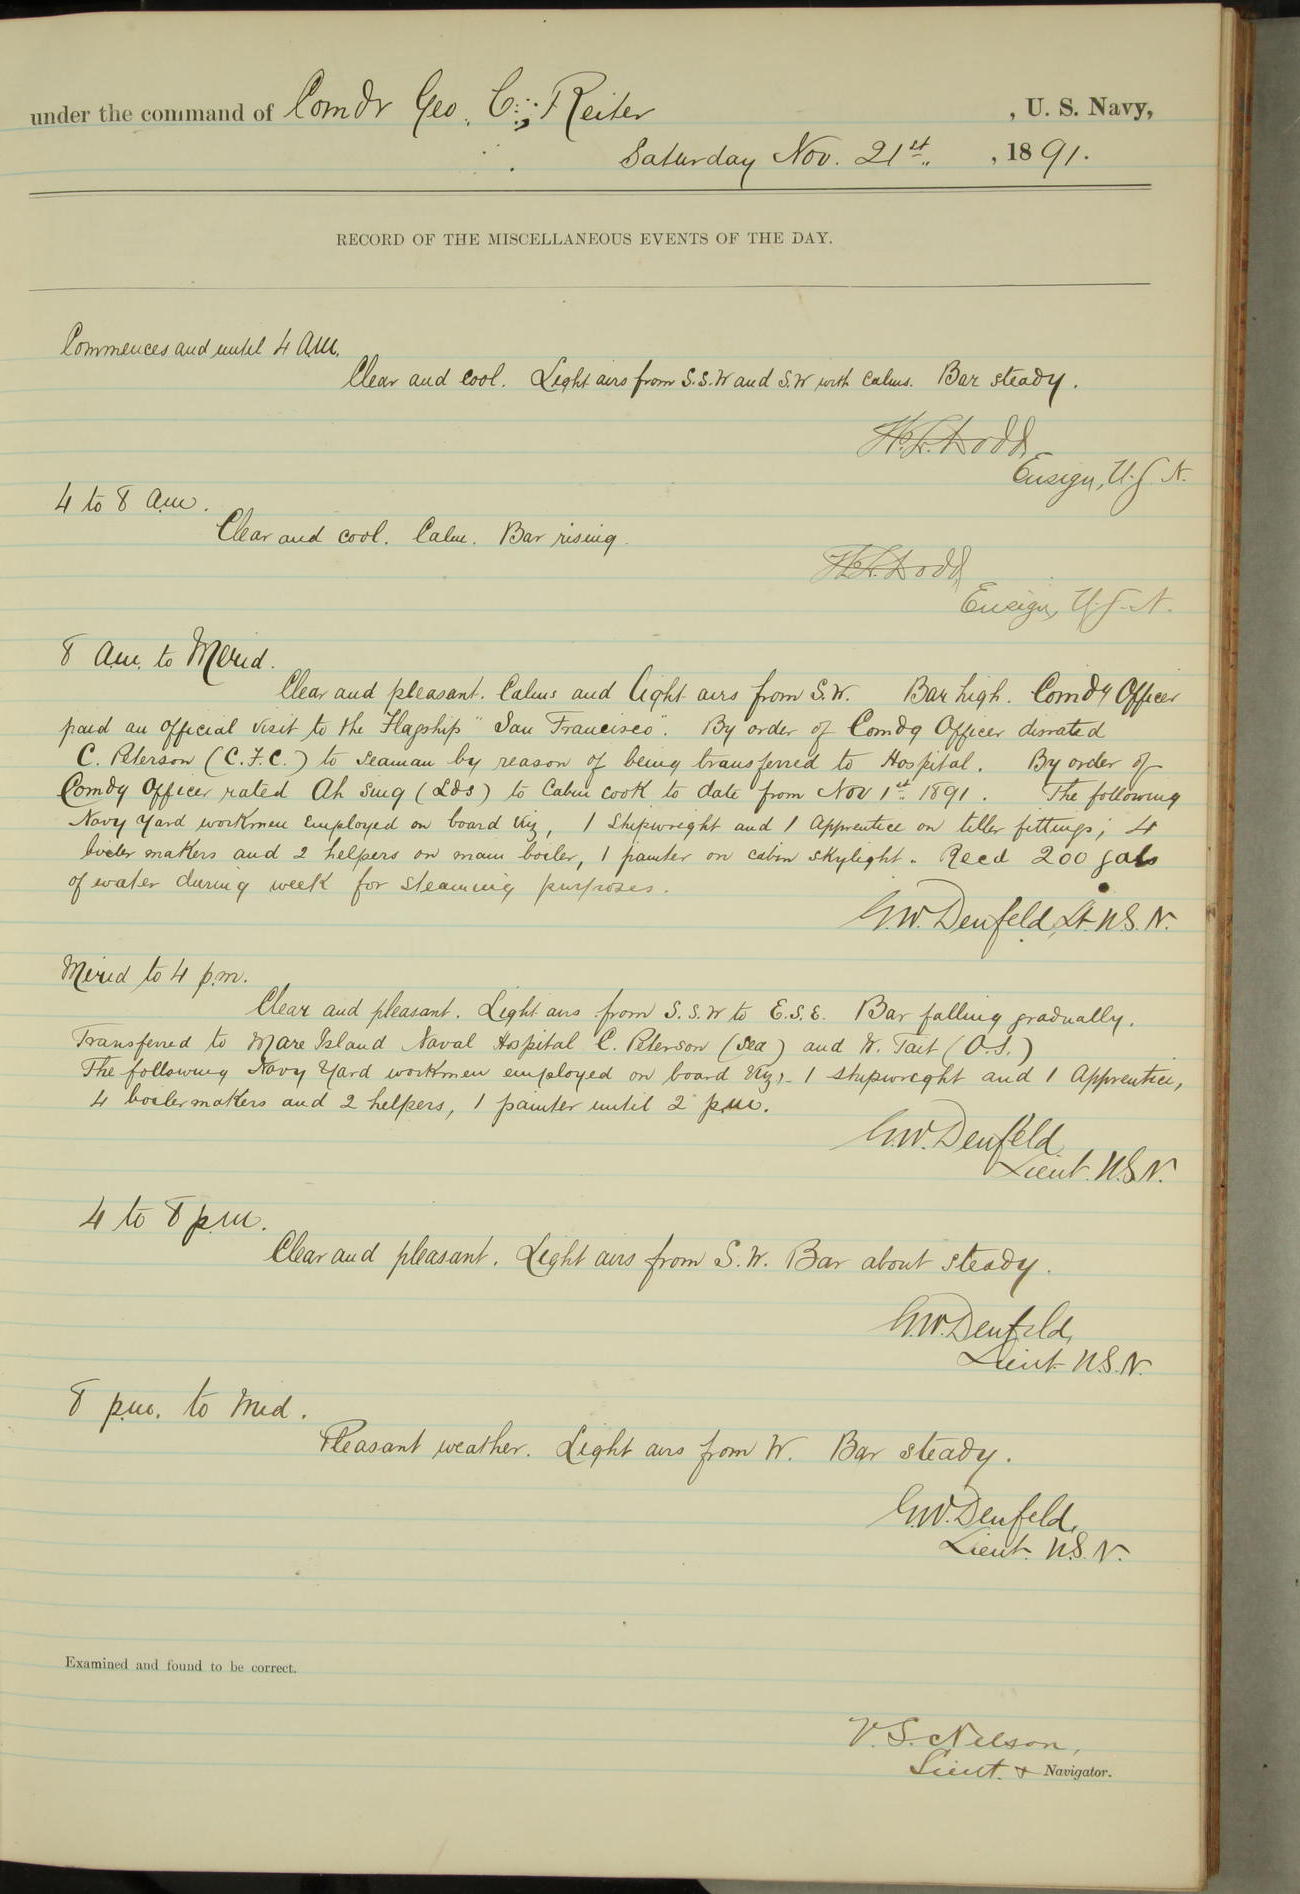 under the command of Comdr Geo. C. Reiter , U. S. Navy,
Saturday Nov. 21st , 1891.
RECORD OF THE MISCELLANEOUS EVENTS OF THE DAY.
Commences and until 4 a.m.
Clear and cool. Light airs from S.S.W and S.W with calms. Bar steady.
Dodd
Ensign, U.S.N.
4 to 8 a.m.
Clear and cool. Calm. Bar rising.
Dodd
Ensign, U.S.N.
8 a.m. to Merid.
Clear and pleasant. Calms and light airs from S.W. Bar high. Comdg Officer
paid an official visit to the Flagship "San Francisco". By order of Comdg Officer disrated
C. Peterson (C.F.C.) to seaman by reason of being transferred to Hospital. By order of
Comdg Officer rated Ah Sing (Lds) to Cabin cook to date from Nov 1st 1891. The following
Navy Yard workmen employed on board viz, 1 shipwright and 1 apprentice on tiller fittings; 4
boiler makers and 2 helpers on main boiler, 1 painter on cabin skylight. Recd 200 gals
of water during week for steaming purposes.
G.W. Denfeld, Lt. U.S.N.
Merid to 4 p.m.
Clear and pleasant. Light airs from S.S.W to E.S.E. Bar falling gradually.
Transferred to Mare Island Naval Hospital C. Peterson (Sea) and W. Tait (O.S.)
The following Navy Yard workmen employed on board viz, - 1 shipwright and 1 apprentice,
4 boilermakers and 2 helpers, 1 painter until 2 p.m.
G.W. Denfeld
Lieut. U.S.N.
4 to 8 p.m.
Clear and pleasant. Light airs from S.W. Bar about steady.
G.W. Denfeld,
Lieut U.S.N.
8 p.m. to Mid.
Pleasant weather. Light airs from W. Bar steady.
G.W. Denfeld,
Lieut. U.S.N.
Examined and found to be correct.
V. S. Nelson,
Lieut. & Navigator.